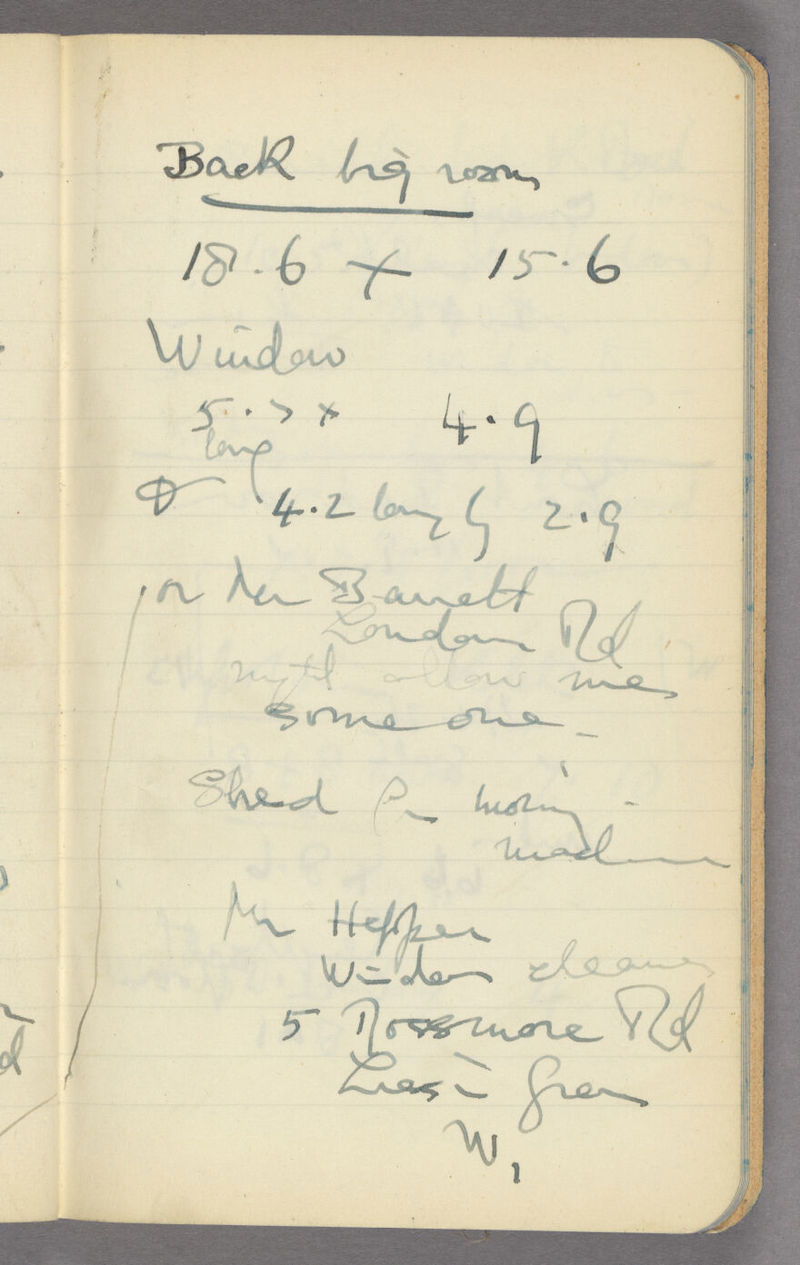 Back big room
18.6 x 15.6
Window
5.7 x 4.9
long
4.2 long by 2.9
or Mr Barrett
London Rd
might allow me
someone -
Shed for mowing -
machine
Mr Hepper
Window cleaner
5 Rossmore Rd
Lisson Green
W1